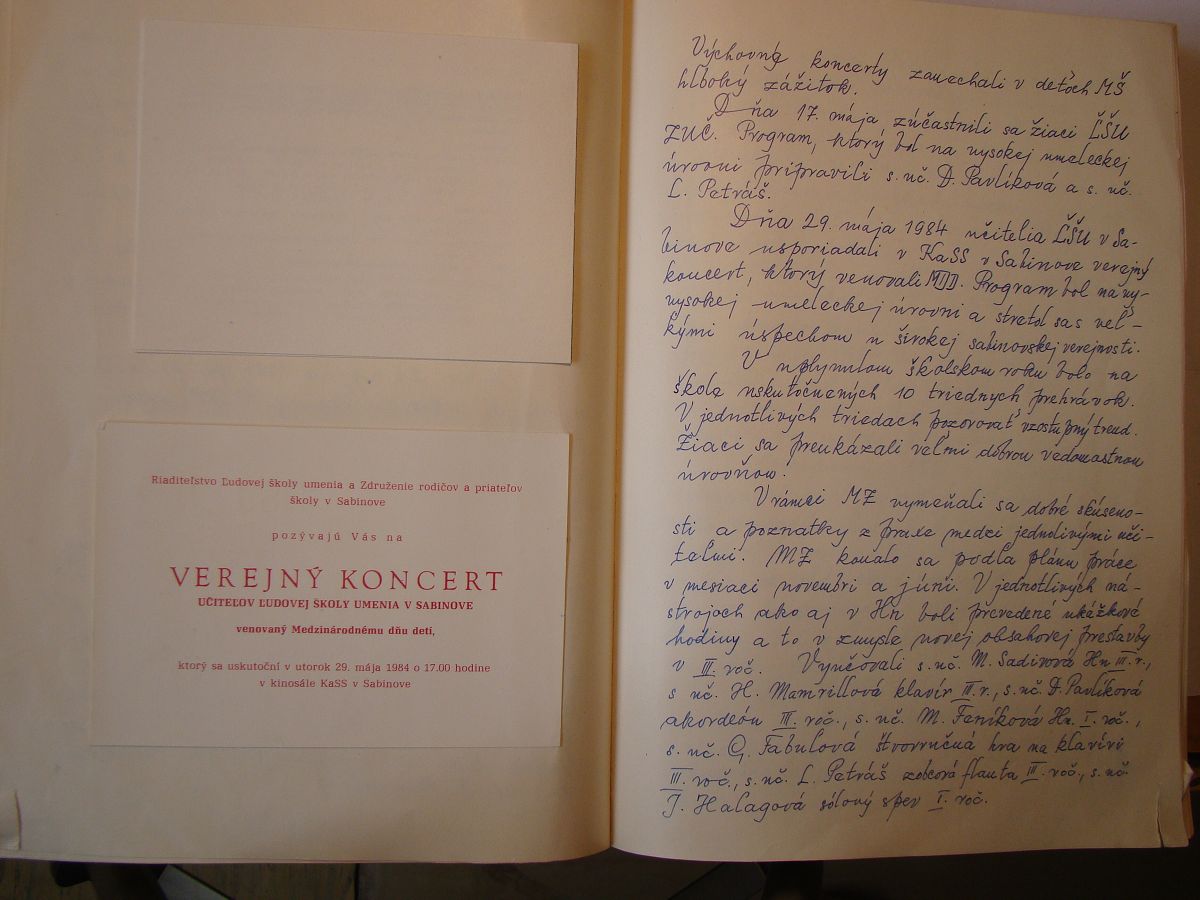 Riaditeľstvo Ľudovej školy umenia a Združenie rodičov a priateľov
školy v Sabinove
pozývajú Vás na
VEREJNÝ KONCERT
UČITEĽOV ĽUDOVEJ ŠKOLY UMENIA V SABINOVE
venovaný Medzinárodnému dňu detí,
ktorý sa uskutoční v utorok 29. mája 1984 o 17.00 hodine
v kinosále KaSS v Sabinove
Výchovné koncerty zanechali v deťoch MŠ
hlboký zážitok.
Dňa 17. mája zúčastnili sa žiaci ĽŠU
ZUČ. Program, ktorý bol na vysokej umeleckej
úrovni pripravili s. uč. D. Pavlíková a s. uč.
L. Petráš.
Dňa 29. mája 1984 učitelia ĽŠU v Sa-
binove usporiadali v KaSS v Sabinove verejný
koncert, ktorý venovali MDD. Program bol na vy-
vysokej umeleckej úrovni a stretol sa s veľ-
kými úspechom u širokej sabinovskej verejnosti.
V uplynulom školskom roku bolo na
škole uskutočnených 10 triednych prehrávok.
V jednotlivých triedach pozorovať vzostupný trend.
Žiaci sa preukázali veľmi dobrou vedomostnou
úrovňou.
V rámci MZ vymeňali sa dobré skúseno-
sti a poznatky z praxe medzi jednolivými uči-
teľmi. MZ konalo sa podľa plánu práce
v mesiaci novembri a júni. V jednotlivých ná-
strojoch ako aj v Hn boli prevedené ukážkové
hodiny a to v zmysle novej obsahovej prestavby
v III. roč. Vyučovali s. uč. M. Sadivová Hn III. r.,
s uč. H. Mamrillová klavír III. r., s. uč. D. Pavlíková
akordeón III. roč., s. uč. M. Feníková Hn. I. roč.,
s. uč. G. Fabuľová štvorručná hra na klavíri
III. roč., s. uč. L. Petráš zobcová flauta III. roč., s. uč.
J. Haľagová sólový spev I. roč.